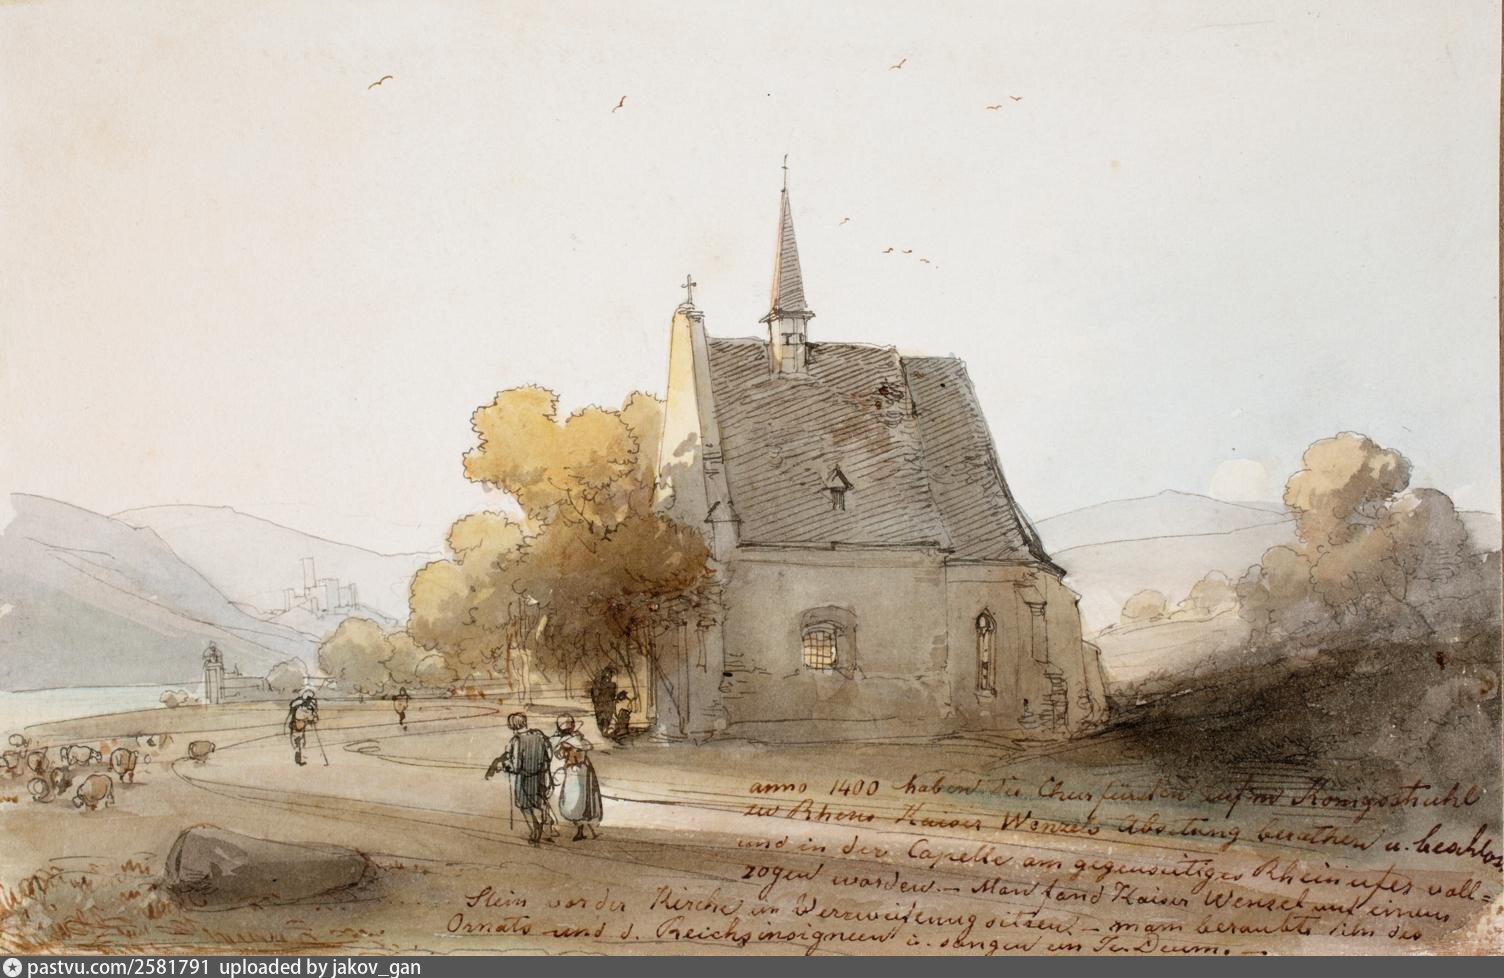 anno 1400 haben die Churfürsten auf'm Königsstuhl
zu Rhens Kaiser Wenzels Absetzung berathen u. beschlos
und in der Capelle am gegenseitigen Rheinufer voll=
zogen worden. — Man fand Kaiser Wenzel auf einem
Stein vor der Kirche in Verzweiflung sitzen. — mann beraubte ihn des
Ornats und d. Reichsinsignien u. sangen ein Te. Deum. —
pastvu.com/2581791 uploaded by jakov_gan